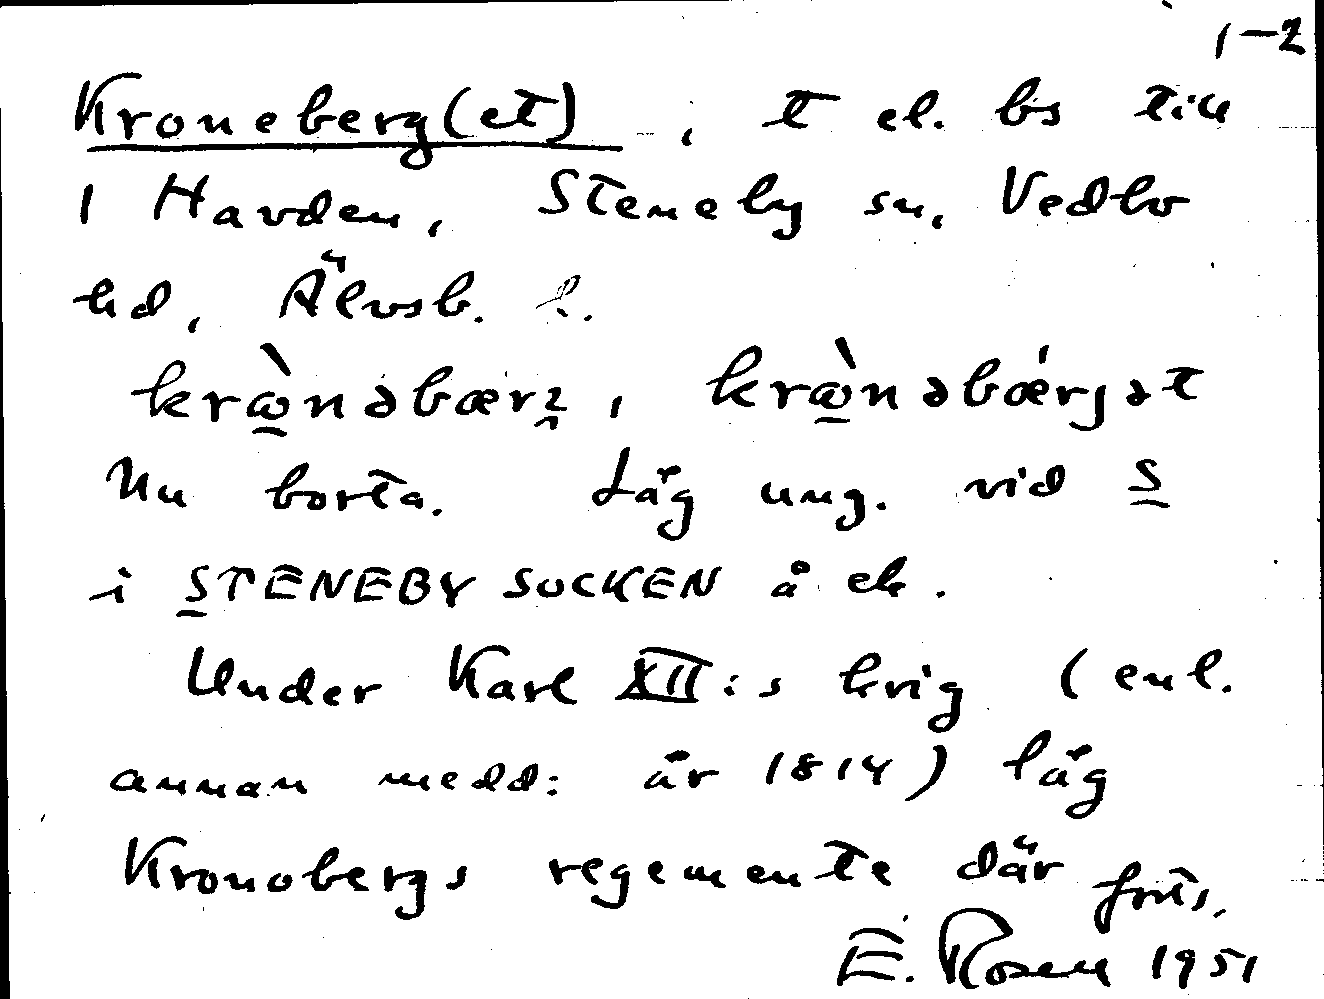 1-2
Kroneberg(et), t el. bs till
1 Havden, Steneby sn, Vedbo
hd, Älvsb. l.
krωǹəbærɡ, krωǹəbǽrjət
Nu borta. Låg ung. vid S
i STENEBY SOCKEN å ek.
Under Karl XII:s krig (enl.
annan medd: år 1814) låg
Kronobergs regemente där
forts.
E. Rosell 1951